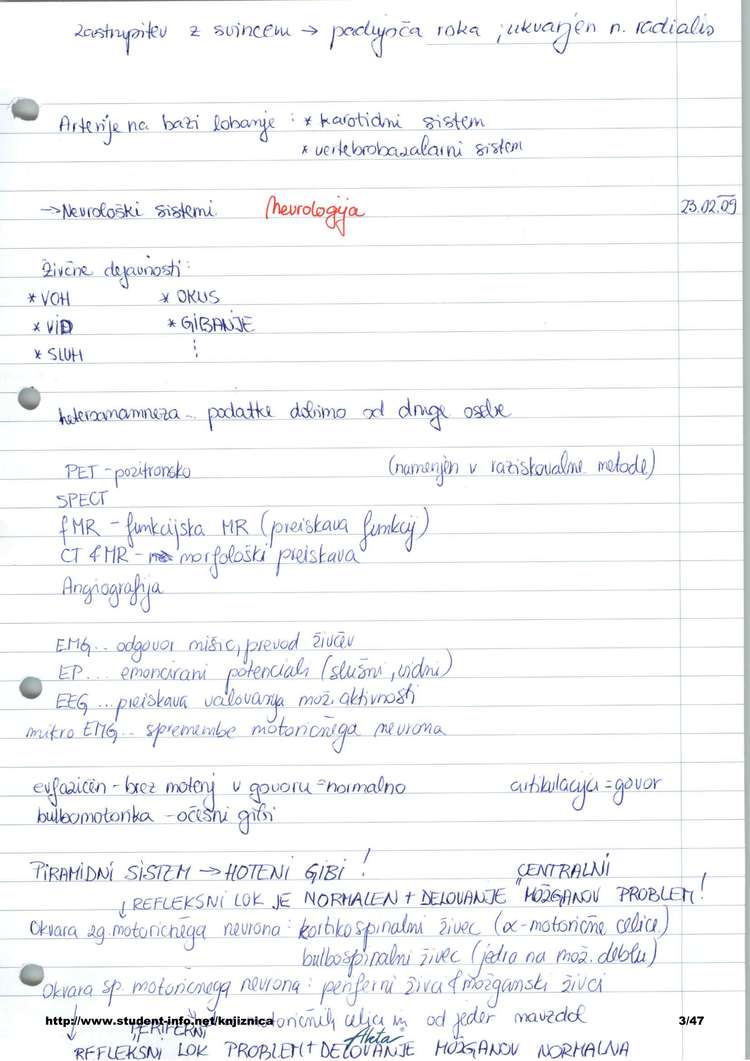 zastrupitev z svincem → padajoča roka ; ukvarjen n. radialis
Arterije na bazi lobanje : * karotidni sistem
* vertebrobazalarni sistem
→ Nevrološki sistemi Nevrologija 23.02.09
Živčne dejavnosti:
* VOH * OKUS
* VID * GIBANJE
* SLUH ⋮
heteroanamneza .. podatke dobimo od druge osebe
PET - pozitronsko (namenjen v raziskovalne metode)
SPECT
fMR - funkcijska MR (preiskava funkcij)
CT & MR - morfološki preiskava
Angiografija
EMG .. odgovor mišic, prevod živcev
EP ... emoncirani potenciali (slušni, vidni)
EEG ... preiskava valovanja mož. aktivnosti
mikro EMG .. spremembe motoričnega nevrona
evfazičen - brez motenj v govoru = normalno artikulacija = govor
bulbomotorika - očesni gibi
PIRAMIDNI SISTEM → HOTENI GIBI ! CENTRALNI
↓ REFLEKSNI LOK JE NORMALEN + DELOVANJE MOŽGANOV PROBLEM!
Okvara zg. motoričnega nevrona : kortikospinalni živec (α-motorične celice)
bulbospinalni živec (jedra na mož. deblu)
Okvara sp. motoričnega nevrona : periferni živci & možganski živci
http://www.student-info.net/knjiznica motoričnih celic in od jeder navzdol 3/47
PERIFERNI
REFLEKSNI LOK PROBLEM + DELOVANJE MOŽGANOV NORMALNA